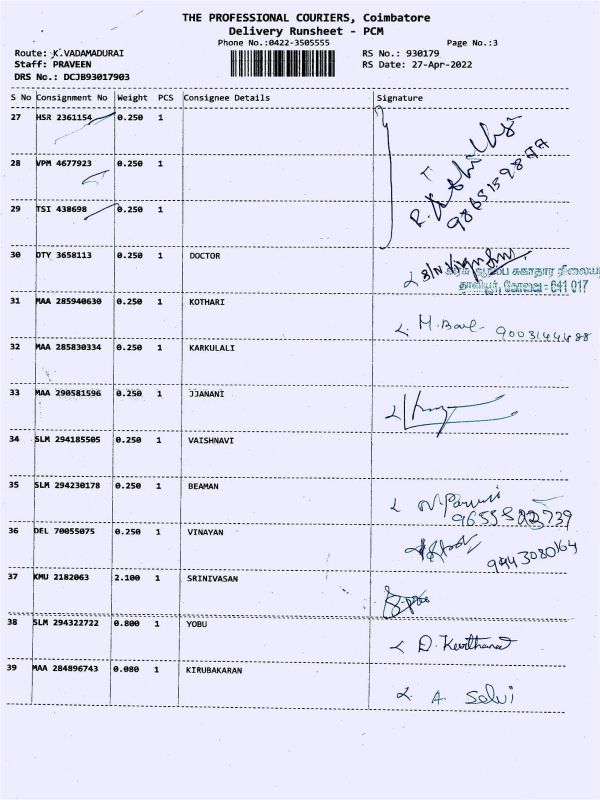 THE PROFESSIONAL COURIERS, Coimbatore
Delivery Runsheet - PCM
Phone No.:0422-3505555 Page No.:3
Route: K.VADAMADURAI RS No.: 930179
Staff: PRAVEEN RS Date: 27-Apr-2022
DRS No.: DCJB93017903
S No Consignment No Weight PCS Consignee Details Signature
27 HSR 2361154 0.250 1
28 VPM 4677923 0.250 1
29 TSI 438698 0.250 1
30 DTY 3658113 0.250 1 DOCTOR
தாளியூர், கோவை - 641 017
31 MAA 285940630 0.250 1 KOTHARI
9003144488
32 MAA 285830334 0.250 1 KARKULALI
33 MAA 290581596 0.250 1 JJANANI
34 SLM 294185505 0.250 1 VAISHNAVI
35 SLM 294230178 0.250 1 BEAMAN
36 DEL 70055075 0.250 1 VINAYAN
9443080164
37 KMU 2182063 2.100 1 SRINIVASAN
38 SLM 294322722 0.800 1 YOBU
D. Keerthana
39 MAA 284896743 0.080 1 KIRUBAKARAN
A. Selvi